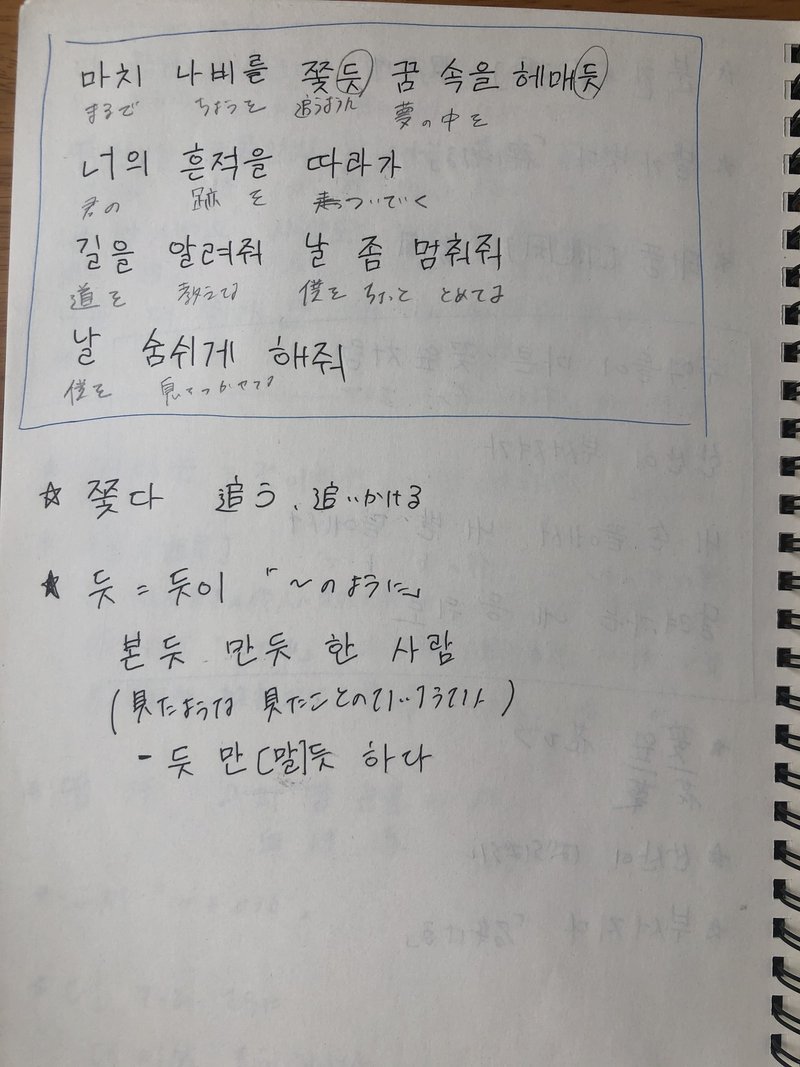 마치 나비를 쫓듯 꿈 속을 헤매듯
まるで ちょうを 追うように 夢の中を
너의 흔적을 따라가
君の 跡を ついていく
길을 알려줘 날 좀 멈춰줘
道を 教えてよ 僕を ちょっと とめてよ
날 숨쉬게 해줘
僕を 息をつかせてよ
☆ 쫓다 追う、追いかける
★ 듯 = 듯이 「~のように」
본듯 만듯 한 사람
(見たような 見たことの
- 듯 만[말]듯 하다